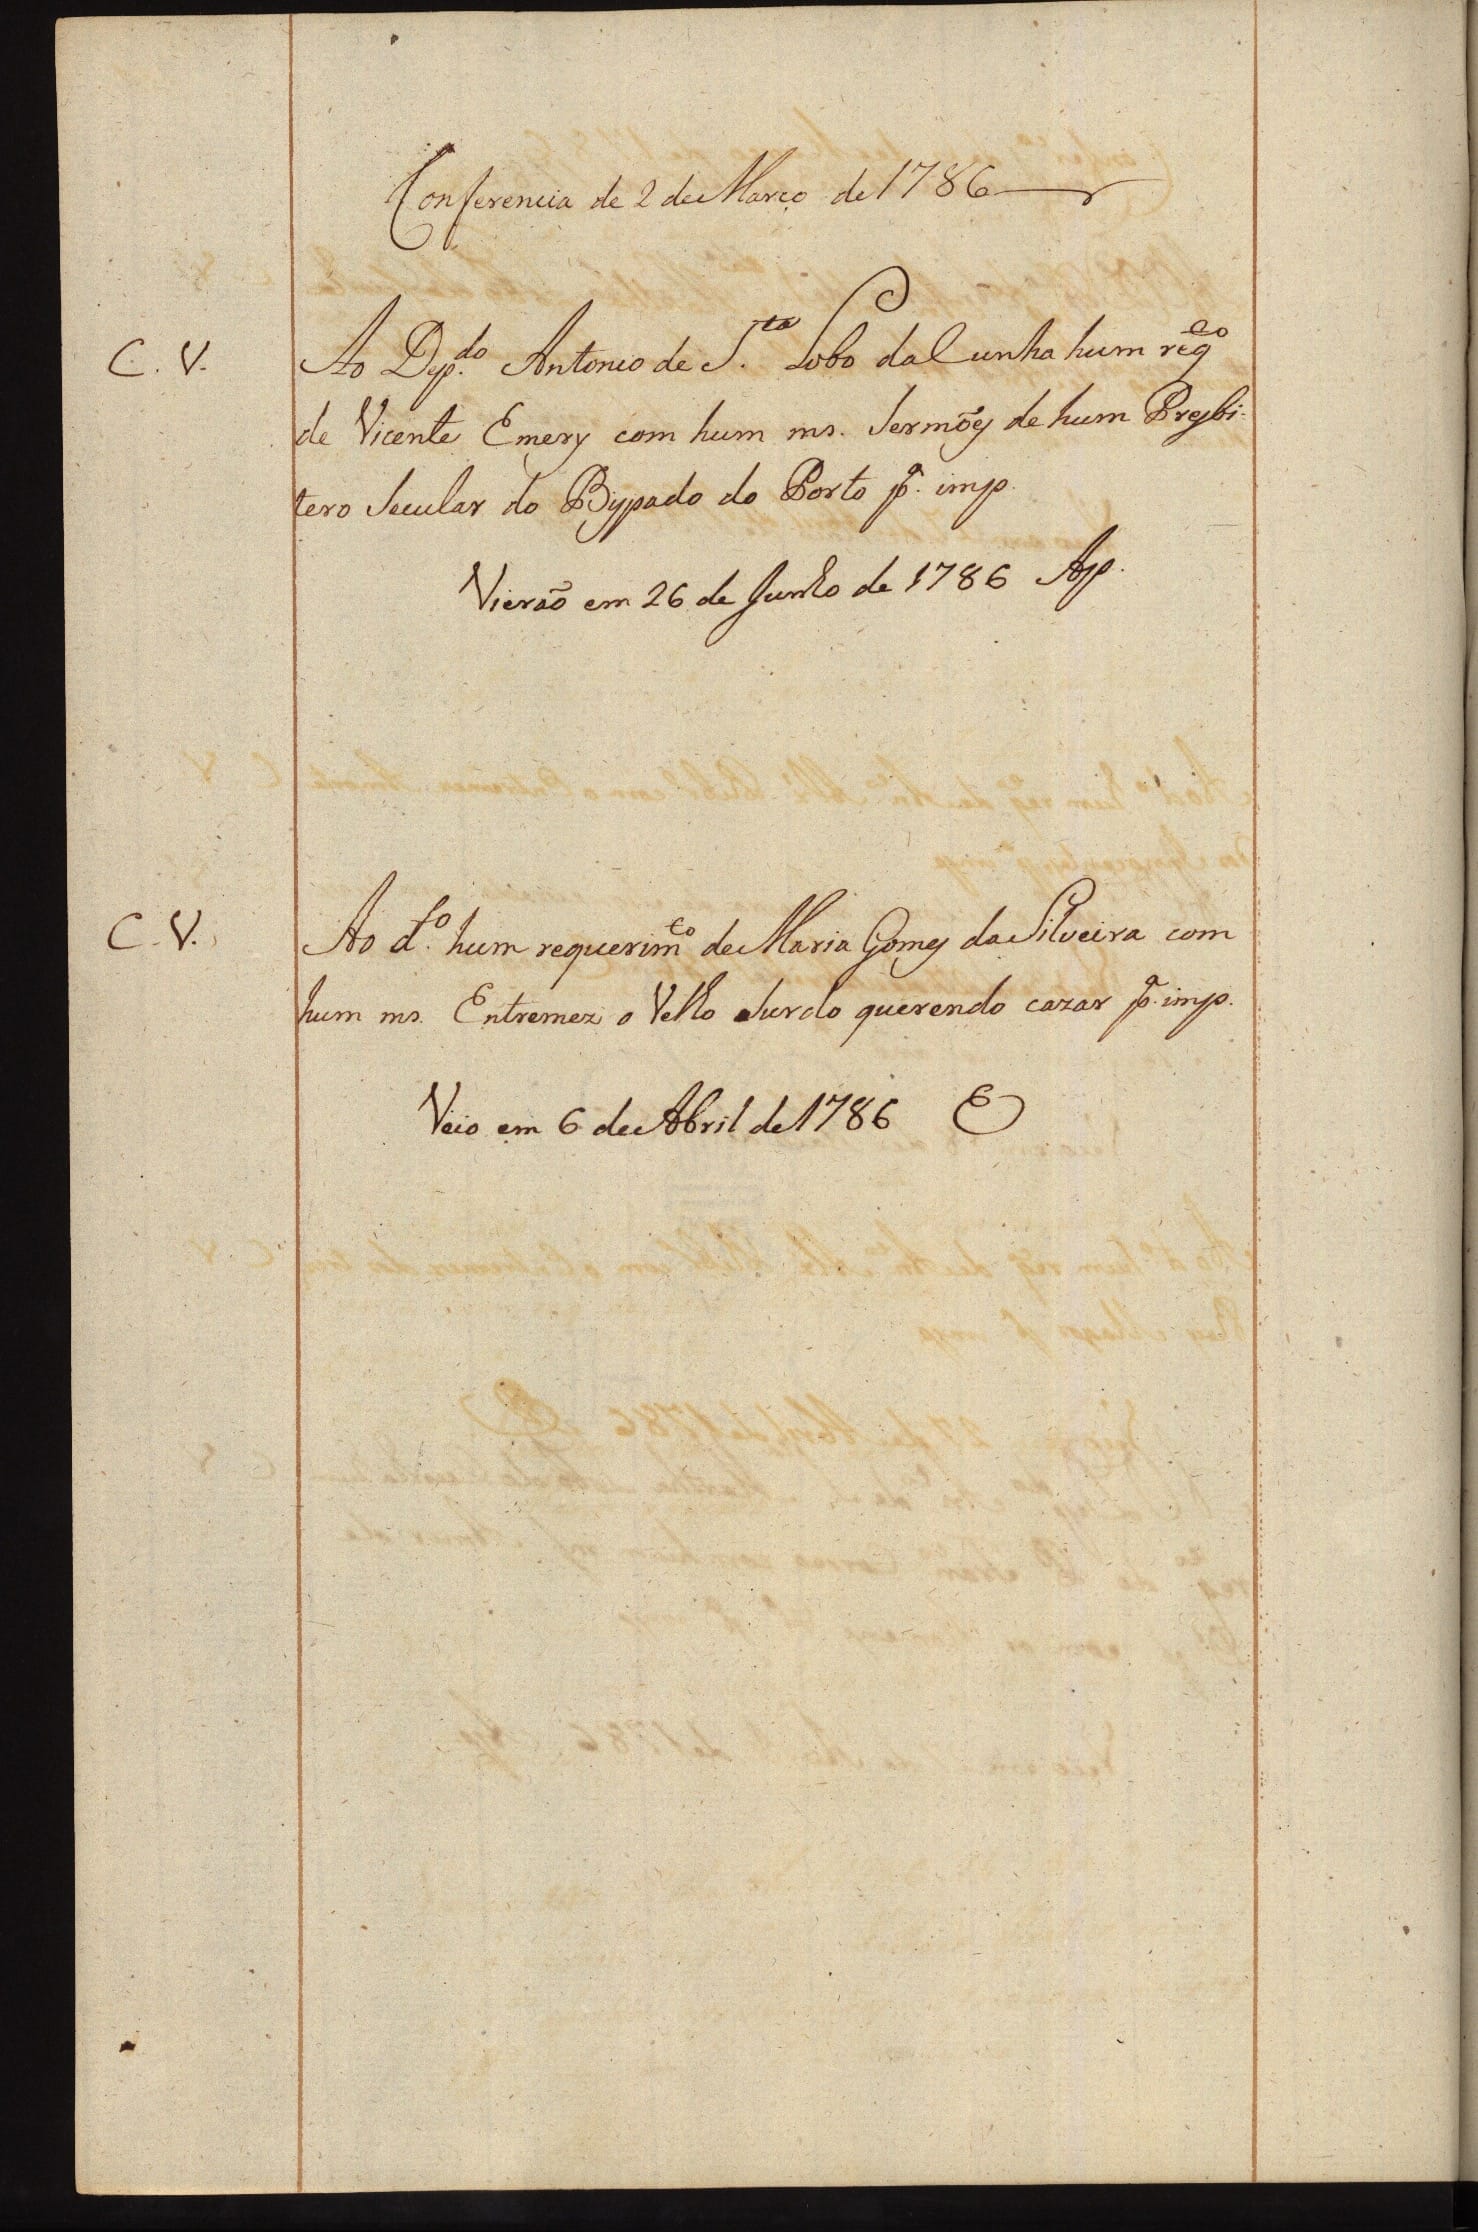 Conferencia de 2 de Março de 1786
C. V.
Ao Dep.do Antonio de S.ta Lobo da Cunha hum reqto
de Vicente Emery com hum ms. Sermões de hum Presbi-
tero Secular do Bispado do Porto pa. imp.
Vierão em 26 de Junho de 1786 App.
C. V.
Ao d.to hum requerimto de Maria Gomes da Silveira com
hum ms. Entremez o Velho Surdo querendo cazar pa. imp.
Veio em 6 de Abril de 1786 E